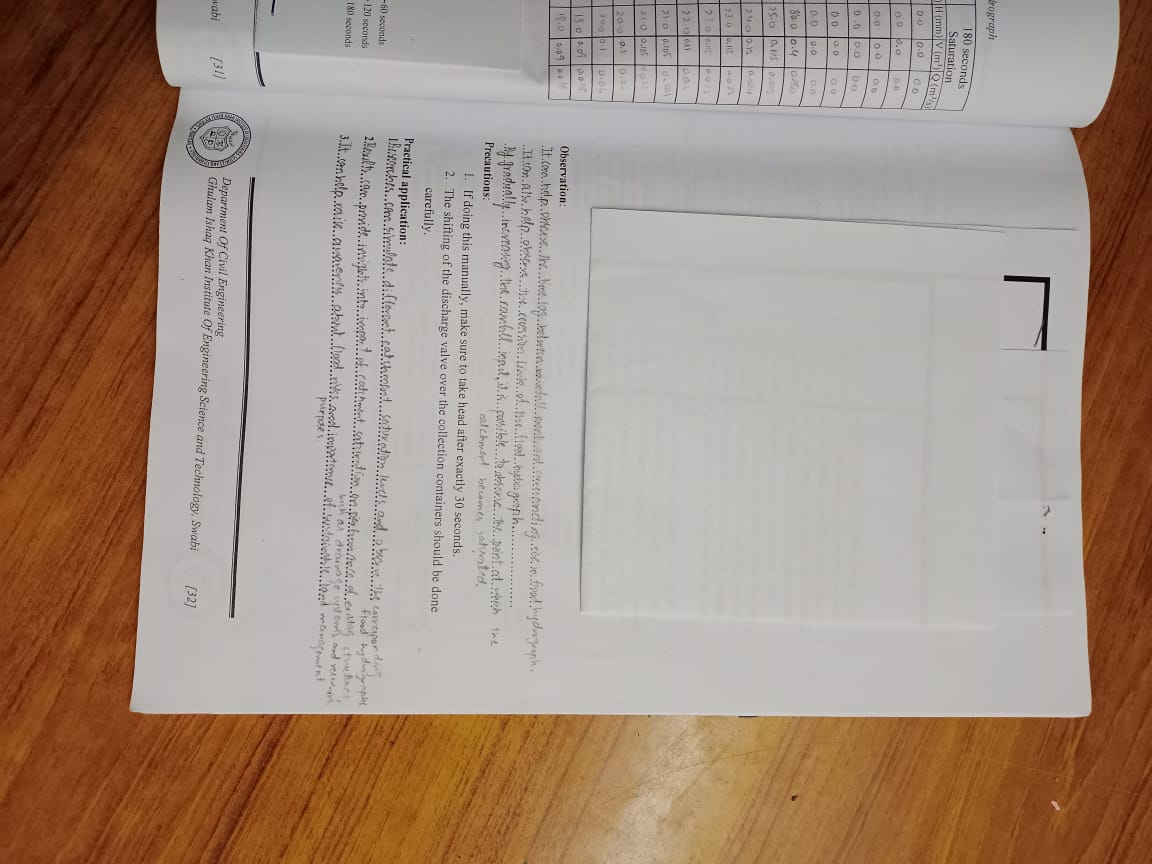 drograph
180 seconds
Saturation
H (mm) V (m³) Q (m³/s)
0.0 0.0 0.0
0.0 0.0 0.0
0.0 0.0 0.0
0.0 0.0 0.0
0.0 0.0 0.0
0.0 0.0 0.0
80.0 0.4
25.0 0.115
24.0 0.12 0.024
23.0 0.115 0.023
23.0 0.115 0.023
22.0 0.11 0.022
21.0 0.105 0.021
21.0 0.105
20.0 0.1 0.02
20.0 0.1 0.02
18.0 0.09 0.018
18.0 0.09 0.018
60 seconds
120 seconds
180 seconds
wabi [31]
Observation:
It can help observe the time lag between rainfall event and corresponding rise in flood hydrograph.
It can also help observe the recession limb of the flood hydrograph
By gradually increasing the rainfall input, it is possible to observe the point at which the
catchment becomes saturated
Precautions:
1. If doing this manually, make sure to take head after exactly 30 seconds.
2. The shifting of the discharge valve over the collection containers should be done
carefully.
Practical application:
1. Researchers can simulate different catchment saturation levels and observe the corresponding
flood hydrographs
2. Results can provide insights into impact of catchment saturation on performance of existing structures
such as drainage systems and
3. It can help raise awareness about flood risks and importance of sustainable land management
purposes.
Department Of Civil Engineering
Ghulam Ishaq Khan Institute Of Engineering Science and Technology, Swabi [32]